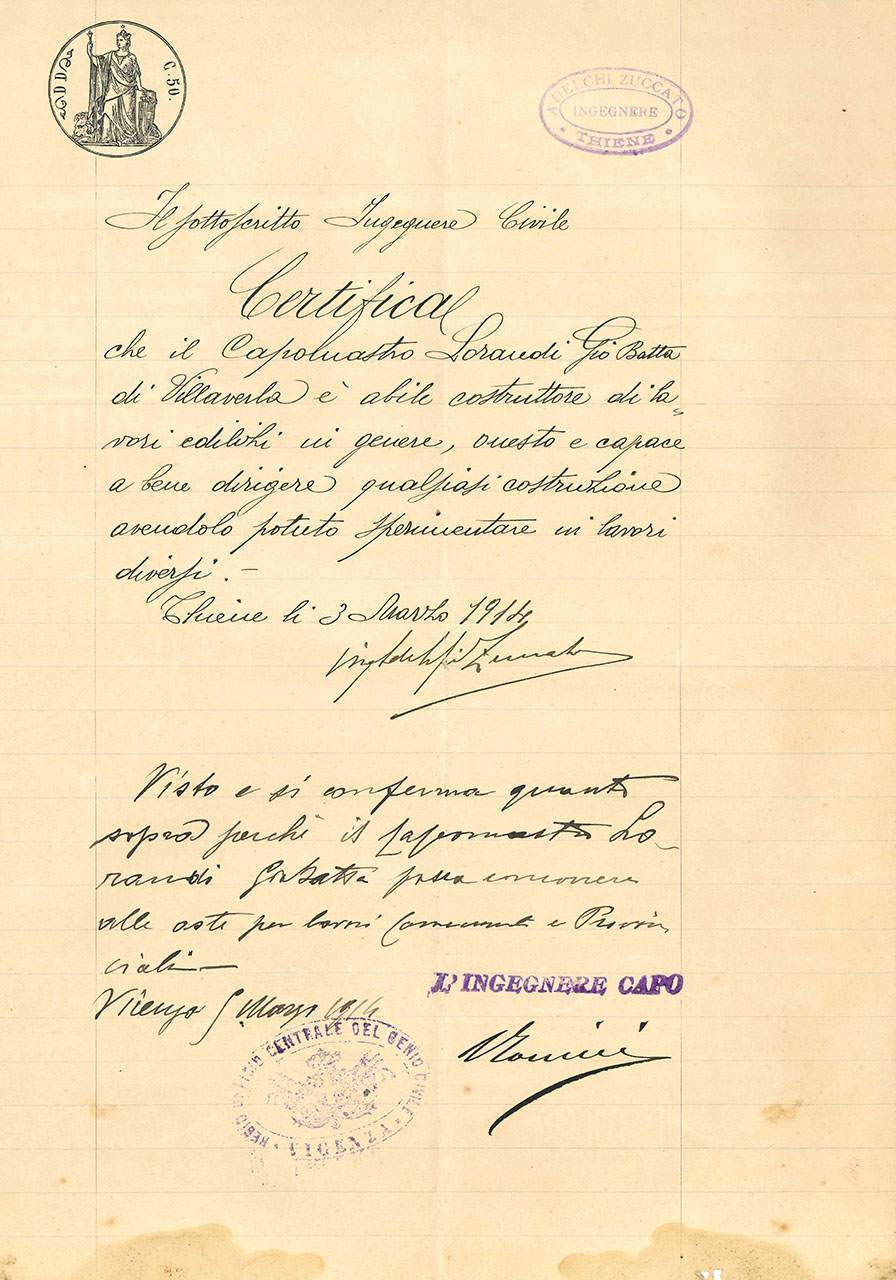 C. 50.
ADELCHI ZUCCATO
INGEGNERE
THIENE
Il sottoscritto Ingegnere Civile
Certifica
che il Capomastro Lorandi Gio Batta
di Villaverla è abile costruttore di la=
vori edilizi in genere, onesto e capace
a bene dirigere qualsiasi costruzione
avendolo potuto sperimentare in lavori
diversi.-
Thiene li 3 Marzo 1914
Visto e si conferma quanto
sopra perchè il Capomastro Lo-
randi Gio Batta possa concorrere
alle aste per lavori Comunali e Provin
ciali-
L'INGEGNERE CAPO
Vicenza 5 Marzo 1914
REGIO UFFICIO CENTRALE DEL GENIO CIVILE
VICENZA